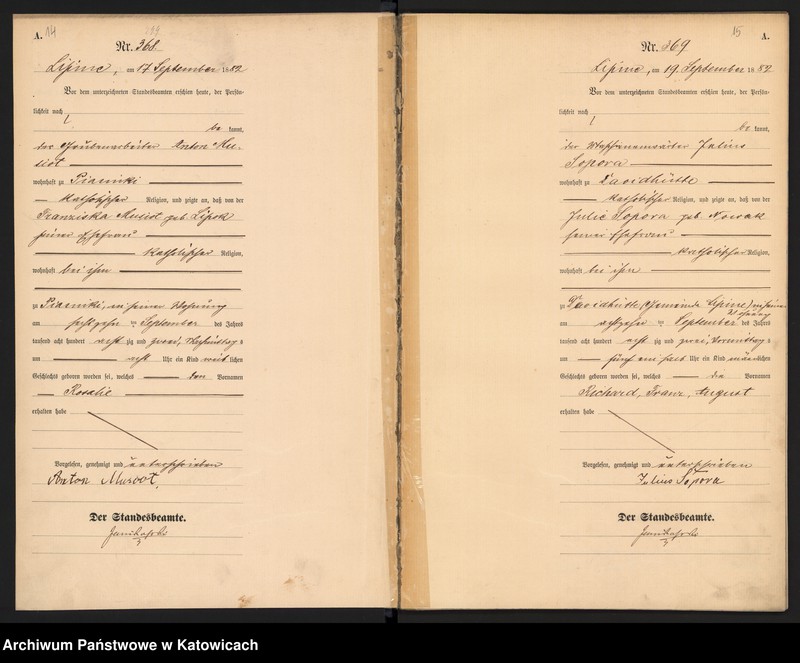 A. 14
Nr. 368.
Lipine, am 17 September 1882
Vor dem unterzeichneten Standesbeamten erschien heute, der Persön-
lichkeit nach
be kannt,
der Grubenarbeiter Anton
wohnhaft zu Piasniki
katholischer Religion, und zeigte an, daß von der
Franziska geb. Lipok
seiner Ehefrau
katholischer Religion,
wohnhaft bei ihm
zu Piasniki, in seiner Wohnung
am sechszehn ten September des Jahres
tausend acht hundert acht zig und zwei, Nachmittags
um acht Uhr ein Kind weib lichen
Geschlechts geboren worden sei, welches den Vornamen
Rosalie
erhalten habe
Vorgelesen, genehmigt und unterschrieben
Anton
Der Standesbeamte.
15 A.
Nr. 369
Lipine, am 19. September 1882
Vor dem unterzeichneten Standesbeamten erschien heute, der Persön-
lichkeit nach
be kannt,
der Julius
Sopora
wohnhaft zu Davidhütte
katholischer Religion, und zeigte an, daß von der
Julie Sopora geb. Nowak
seiner Ehefrau
katholischer Religion,
wohnhaft bei ihm
zu Davidhütte (Gemeinde Lipine) in seiner
Wohnung
am achtzehn ten September des Jahres
tausend acht hundert acht zig und zwei, Vormittags
um fünf ein halb Uhr ein Kind männlichen
Geschlechts geboren worden sei, welches die Vornamen
Richard, Franz, August
erhalten habe
Vorgelesen, genehmigt und unterschrieben
Julius Sopora
Der Standesbeamte.
Archiwum Państwowe w Katowicach